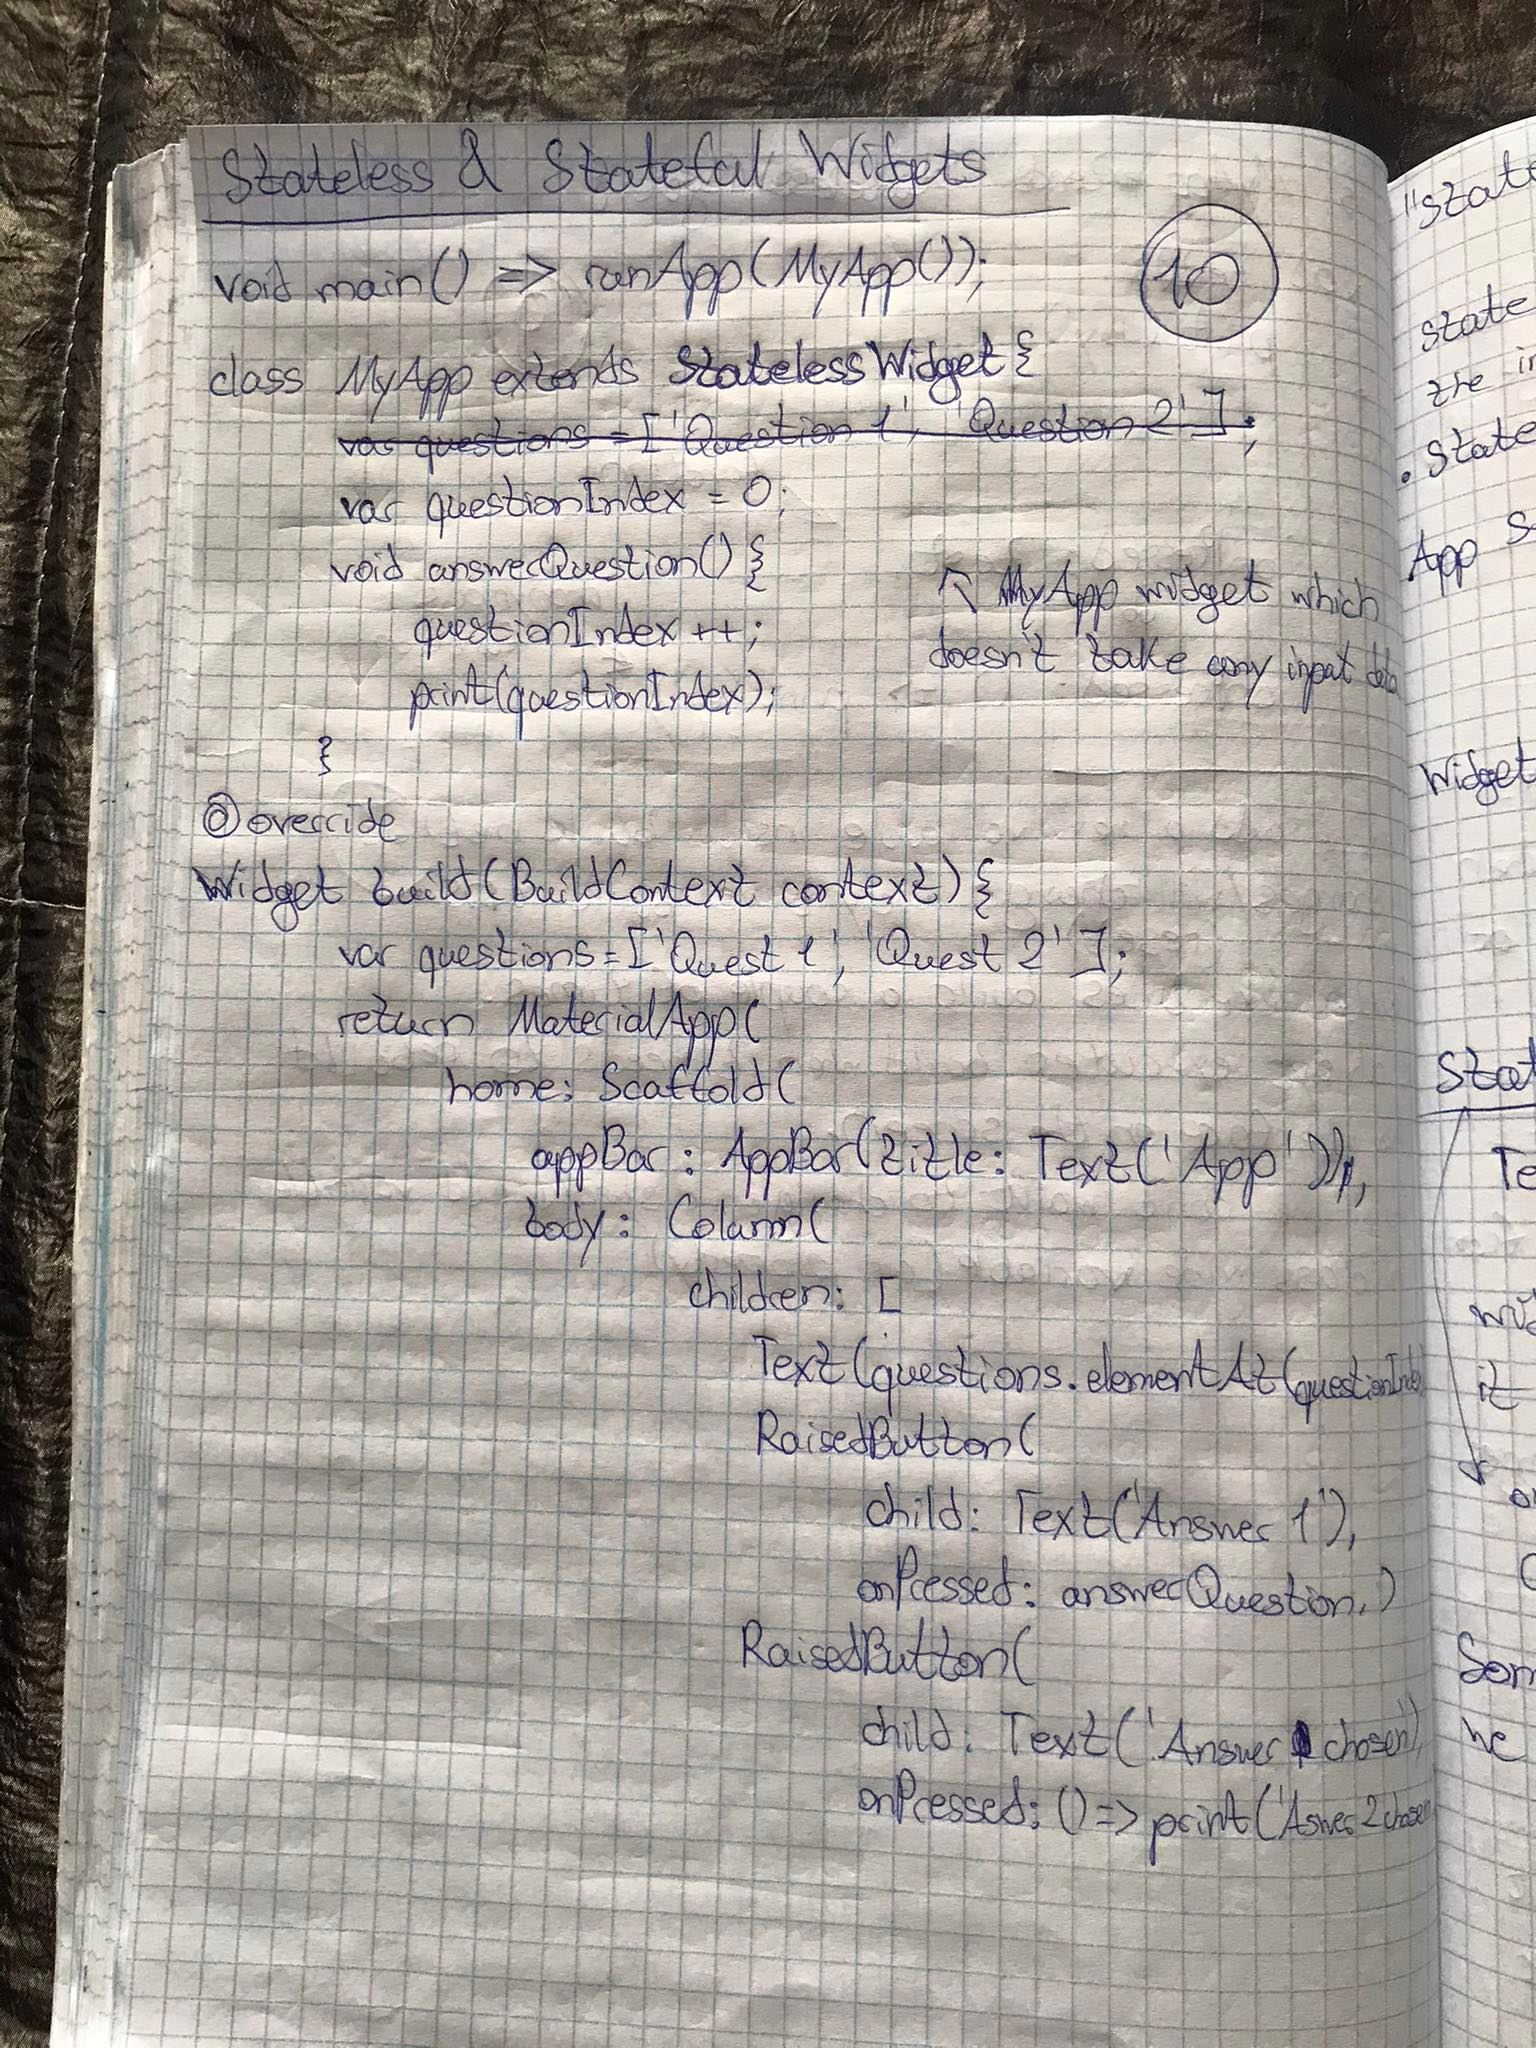 Stateless & Stateful Widgets
void main() => runApp(MyApp());
10
class MyApp extends StatelessWidget{
var questions = ['Question 1', 'Question 2'];
var questionIndex = 0;
void answerQuestion() {
questionIndex ++;
print(questionIndex);
}
↖ MyApp widget which
doesn't take any input data
@override
Widget build(BuildContext context) {
var questions = ['Quest 1', 'Quest 2'];
return MaterialApp(
home: Scaffold(
appBar: AppBar(title: Text('App')),
body: Column(
children: [
Text(questions.elementAt(questionInde
RaisedButton(
child: Text('Answer 1'),
onPressed: answerQuestion,)
RaisedButton(
child: Text('Answer chosen'),
onPressed: () => print('Aswer 2 chosen
"State
State
the in
. State
App S
Widget
Stat
Te
it
Som
we